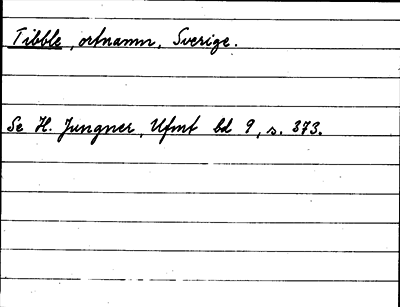 Tibble, ortnamn, Sverige.
Se H. Jungner, Ufmt bd 9, s. 373.